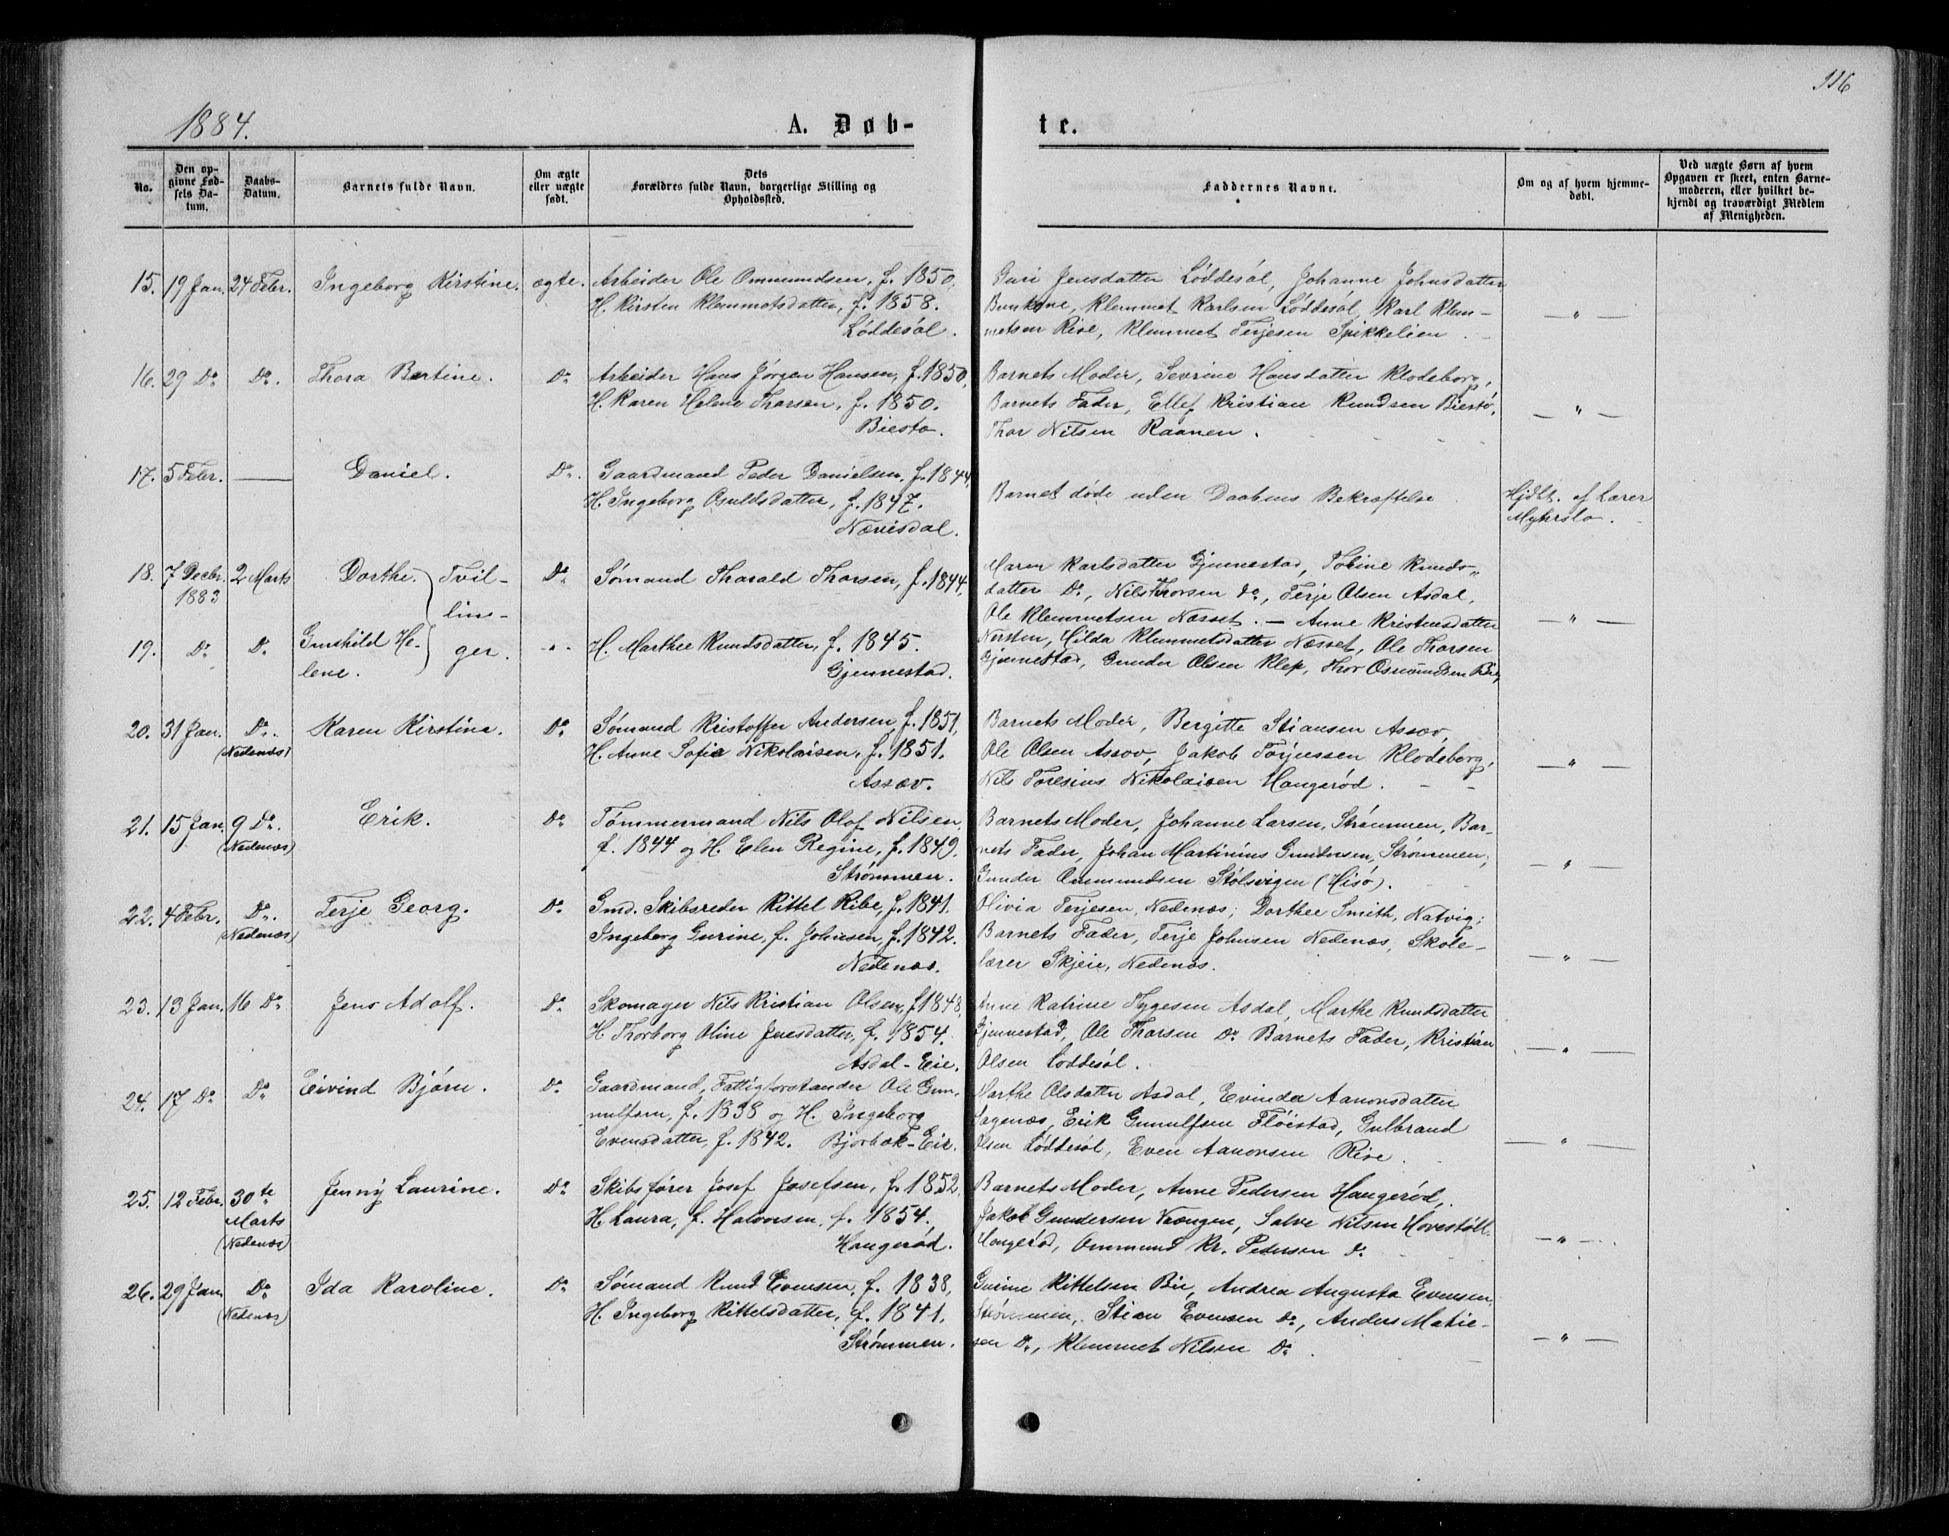 116
1884.
A. Døb-
te.
No.
Den op-
givne Fød-
sels Da-
tum.
Daabs-
Datum.
Barnets fulde Navn.
Om ægte
eller uægte
født.
Dets
Forældres fulde Navn, borgerlige Stilling og
Opholdssted.
Faddernes Navne.
Om og af hvem hjemme-
døbt.
Ved uægte Børn af hvem
Opgaven er skeet, enten Barne-
moderen, eller hvilket be-
kjendt og troværdigt Medlem
af Menigheden.
15. 19 Jan. 24 Febr. Ingeborg Kirstine. ægte. Arbeider Ole Ommundsen, f. 1850,
H. Kirsten Klemmetsdatter, f. 1858.
Løddesøl.
Guri Jensdatter Løddesøl, Johanne Johnsdatter
Klemmet Karlsen Løddesøl, Karl Klem-
metsen Rise, Klemmet Terjesen Spikkelien.
— „ —
16. 29 Do Do. Thora Bertine. Do Arbeider Hans Jørgen Hansen, f. 1850,
H. Karen Helene Thorsen, f. 1850.
Biestø.
Barnets Moder, Sevrine Hansdatter Klodeborg,
Barnets Fader, Ellef Kristian Knudsen Biestø,
Thor Nilsen Raanen.
— „ —
17. 5 Febr. — Daniel. Do. Gaardmand Peder Danielsen, f. 1844,
H. Ingeborg Osuldsdatter, f. 1847.
Nævisdal.
Barnet døde uden Daabens Bekræftelse.
Hjdbt. af Lærer
Myhrslo.
18. 7 Decbr. 2 Marts Dorthe. Tvil- Do Sømand Tharald Thorsen, f. 1844,
1883
lin-
19. Do Do Gunhild He- ger. -"- H. Marthee Knudsdatter, f. 1845.
lene.
Gjennestad.
Maren Karlsdatter Gjennestad, Tobine Knuds-
datter Do, Nils Thorsen do, Terje Olsen Asdal,
Ole Klemmetsen Næsset. — Anne Kristensdatter
Nersten, Hilda Klemmetsdatter Næsset, Ole Thorsen
Gjennestad, Gunder Olsen Klep, Thor Osmundsen
— „ —
20. 31 Jan. Do. Karen Kirstine. Do Sømand Kristoffer Andersen f. 1851,
(Nedenæs)
H. Anne Sofie Nikolaisen, f. 1851.
Assev.
Barnets Moder, Bergitte Stiansen Assev,
Ole Olsen Assev, Jakob Torjussen Klodeborg,
Nils Toresius Nikolaisen Haugerød.
— „ —
21. 15 Jan. 9 Do. Erik. Do Tømmermand Nils Olof Nilsen,
(Nedenæs)
f. 1844 og H. Elen Regine, f. 1849.
Strømmen.
Barnets Moder, Johanne Larsen, Strømmen, Bar-
nets Fader, Johan Martinius Gundersen, Strømmen,
Gunder Ommundsen Stølsvigen (Hisø).
— „ —
22. 4 Febr. Do. Terje Georg. Do Gmd. Skibsreder Kittel Ribe, f. 1841.
(Nedenæs)
Ingeborg Gurine, f. Johnsen, f. 1842.
Nedenæs.
Olivia Terjesen, Nedenæs; Dorthee Smith, Natvig;
Barnets Fader, Terje Johnsen Nedenæs, Skole-
lærer Skjeie, Nedenæs.
— „ —
23. 13 Jan. 16 Do Jens Adolf. Do Skomager Nils Kristian Olsen, f. 1848,
H. Thorborg Oline Jensdatter, f. 1854.
Asdal-Eie.
Anne Katrine Thygesen Asdal, Marthe Knudsdatter
Gjennestad, Ole Thorsen Do Barnets Fader, Kristian
Olsen Løddesøl.
— „ —
24. 17 Do Do Eivind Bjørn. Do Gaardmand, Fattigforstander Ole Gun-
nulfsen, f. 1838 og H. Ingeborg
Evensdatter, f. 1842. Bjorbæk-Eie.
Marthe Olsdatter Asdal, Evinda Aanonsdatter
Erik Gunnulfsen Fløistad, Gulbrand
Olsen Løddesøl, Even Aanonsen Rise.
— „ —
25. 12 Febr. 30te Jenny Laurine. Do Skibsfører Josef Josefsen, f. 1852,
Marts
(Nedenæs)
H. Laura, f. Halvorsen, f. 1854.
Haugerød.
Barnets Moder, Anne Pedersen Haugerød,
Jakob Gundersen Vrængen, Salve Nilsen
Haugerød, Ommund Kr. Pedersen Do
— „ —
26. 29 Jan. Do Ida Karoline. Do Sømand Knud Evensen, f. 1838,
(Nedenæs)
H. Ingeborg Kittelsdatter, f. 1841.
Strømmen.
Gurine Kittelsen Bie, Andrea Augusta Evensen,
Strømmen, Stian Evensen Do, Anders Matie-
sen Do, Klemmet Nilsen Do.
— „ —